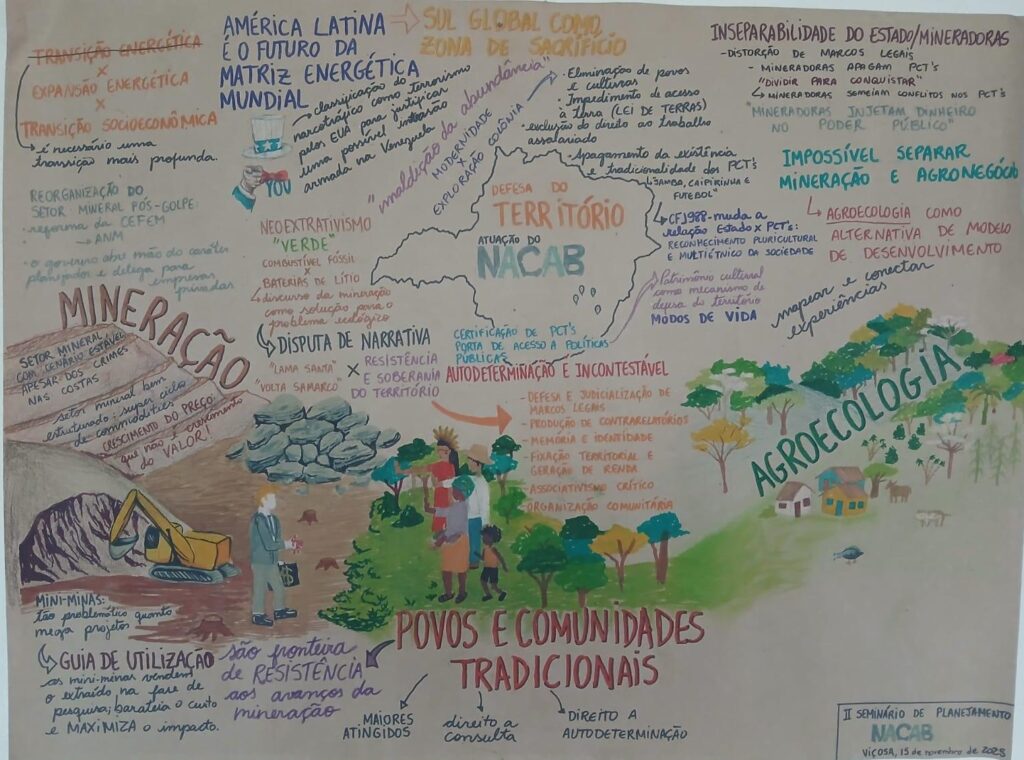 TRANSIÇÃO ENERGÉTICA
X
EXPANSÃO ENERGÉTICA
X
TRANSIÇÃO SOCIOECONÔMICA
é necessário uma
transição mais profunda.
AMÉRICA LATINA
É O FUTURO DA
MATRIZ ENERGÉTICA
MUNDIAL
SUL GLOBAL COMO
ZONA DE SACRIFÍCIO
classificação do
narcotráfico como terrorismo
pelos EUA para justificar
uma possível intrusão
armada na Venezuela
YOU
"maldição da abundância"
MODERNIDADE
EXPLORAÇÃO COLÔNIA
• Eliminação de povos
e culturas
• Impedimento de acesso
à terra (LEI DE TERRAS)
• exclusão do direito ao trabalho
assalariado
• Apagamento da existência
e tradicionalidade dos PCT's
"SAMBA, CAIPIRINHA E
FUTEBOL"
INSEPARABILIDADE DO ESTADO/MINERADORAS
- DISTORÇÃO DE MARCOS LEGAIS
- MINERADORAS APAGAM PCT's
"DIVIDIR PARA CONQUISTAR"
MINERADORAS SEMEIAM CONFLITOS NOS PCT's
"MINERADORAS INJETAM DINHEIRO
NO PODER PÚBLICO"
IMPOSSÍVEL SEPARAR
MINERAÇÃO E AGRONEGÓCIO
AGROECOLOGIA COMO
ALTERNATIVA DE MODELO
DE DESENVOLVIMENTO
mapear e conectar
experiências
REORGANIZAÇÃO DO
SETOR MINERAL PÓS-GOLPE:
reforma da CEFEM
ANM
• o governo abre mão do caráter
planejador e delega para
empresas
privadas
NEOEXTRATIVISMO
"VERDE"
COMBUSTÍVEL FÓSSIL
X
BATERIAS DE LÍTIO
discurso da mineração
como solução para o
problema ecológico
DISPUTA DE NARRATIVA
"LAMA SANTA"
"VOLTA SAMARCO"
X
RESISTÊNCIA
E SOBERANIA
DO TERRITÓRIO
DEFESA DO
TERRITÓRIO
ATUAÇÃO DO
NACAB
CF1988 - muda a
relação Estado x PCT's:
RECONHECIMENTO PLURICULTURAL
E MULTIÉTNICO DA SOCIEDADE
Patrimônio cultural
como mecanismo de
defesa do território
MODOS DE VIDA
CERTIFICAÇÃO DE PCT's
PORTA DE ACESSO A POLÍTICAS
PÚBLICAS
AUTODETERMINAÇÃO É INCONTESTÁVEL
- DEFESA E JUDICIALIZAÇÃO DE
MARCOS LEGAIS
- PRODUÇÃO DE CONTRARELATÓRIOS
- MEMÓRIA E IDENTIDADE
- FIXAÇÃO TERRITORIAL E
GERAÇÃO DE RENDA
- ASSOCIATIVISMO CRÍTICO
- ORGANIZAÇÃO COMUNITÁRIA
MINERAÇÃO
SETOR MINERAL
COM CENÁRIO ESTÁVEL
APESAR DOS CRIMES
NAS COSTAS
setor mineral bem
estruturado: super ciclo
de commodities
CRESCIMENTO DO PREÇO:
que não é crescimento
do VALOR!
AGROECOLOGIA
MINI-MINAS:
tão problemático quanto
mega projetos
GUIA DE UTILIZAÇÃO
as mini-minas vendem
o extraído na fase de
pesquisa; barateia o custo
e MAXIMIZA o impacto.
são fronteira
de RESISTÊNCIA
aos avanços da
mineração
POVOS E COMUNIDADES
TRADICIONAIS
MAIORES
ATINGIDOS
direito a
consulta
DIREITO A
AUTODETERMINAÇÃO
II SEMINÁRIO DE PLANEJAMENTO
NACAB
VIÇOSA, 15 de novembro de 2025